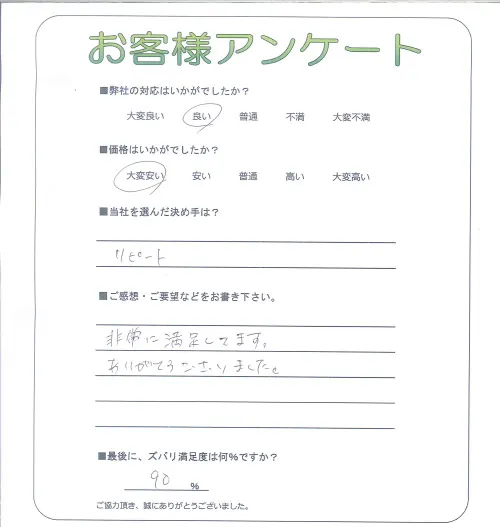 お客様アンケート
■弊社の対応はいかがでしたか？
大変良い 良い 普通 不満 大変不満
■価格はいかがでしたか？
大変安い 安い 普通 高い 大変高い
■当社を選んだ決め手は？
リピート
■ご感想・ご要望などをお書き下さい。
非常に満足してます。
ありがとうございました。
■最後に、ズバリ満足度は何％ですか？
90 ％
ご協力頂き、誠にありがとうございました。